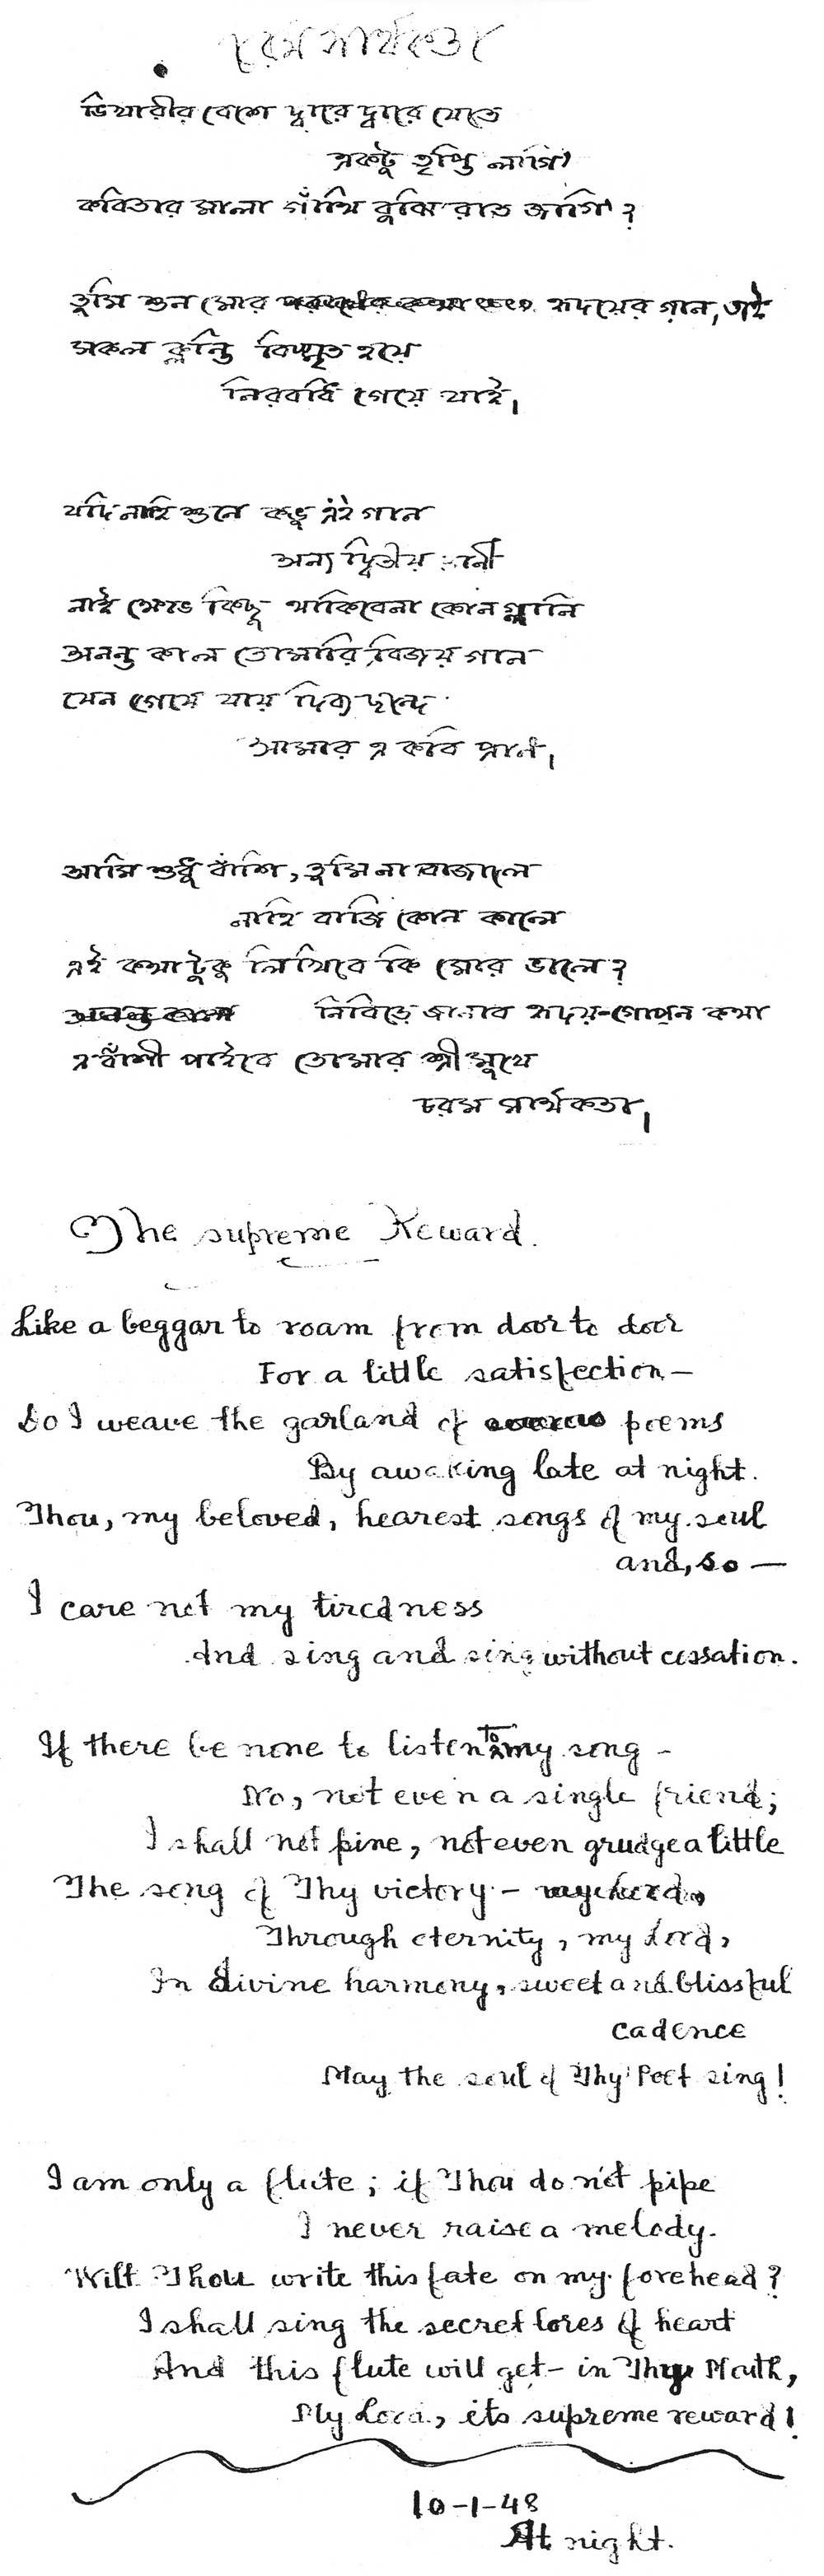 চরম সার্থকতা
ভিখারীর বেশে দ্বারে দ্বারে যেতে
একটু তৃপ্তি লাগি
কবিতার মালা গাঁথি বুঝি রাত জাগি?
তুমি শুন মোর হৃদয়ের গান, তাই
সকল ক্লান্তি বিস্মৃত হয়ে
নিরবধি গেয়ে যাই।
যদি নাহি শুনে কভু এই গান
অন্য দ্বিতীয় প্রাণী
নাই ক্ষোভ কিছু থাকিবেনা কোন গ্লানি
অনন্ত কাল তোমারি বিজয় গান
যেন গেয়ে যায় দিব্য ছন্দে
আমার এ কবি প্রাণ।
আমি শুধু বাঁশি, তুমি না বাজালে
নাহি বাজি কোন কালে
এই কথাটুকু লিখিবে কি মোর ভালে?
নিবিড়ে জানাব হৃদয়-গোপন কথা
এ বাঁশী পাইবে তোমার শ্রীমুখে
চরম সার্থকতা।
The supreme Reward.
Like a beggar to roam from door to door
For a little satisfection—
So I weave the garland of poems
By awaking late at night.
Thou, my beloved, hearest songs of my soul
and, so —
I care not my tiredness
And sing and sing without cessation.
If there be none to listen to my song –
No, not even a single friend;
I shall not pine, not even grudge a little
The song of Thy victory –
Through eternity, my Lord,
In divine harmony, sweet and blissful
cadence
May the soul of Thy Poet sing!
I am only a flute; if Thou do not pipe
I never raise a melody.
Wilt Thou write this fate on my forehead?
I shall sing the secret lores of heart
And this flute will get – in Thy Mouth,
My Lord, its supreme reward!
10-1-48
At night.